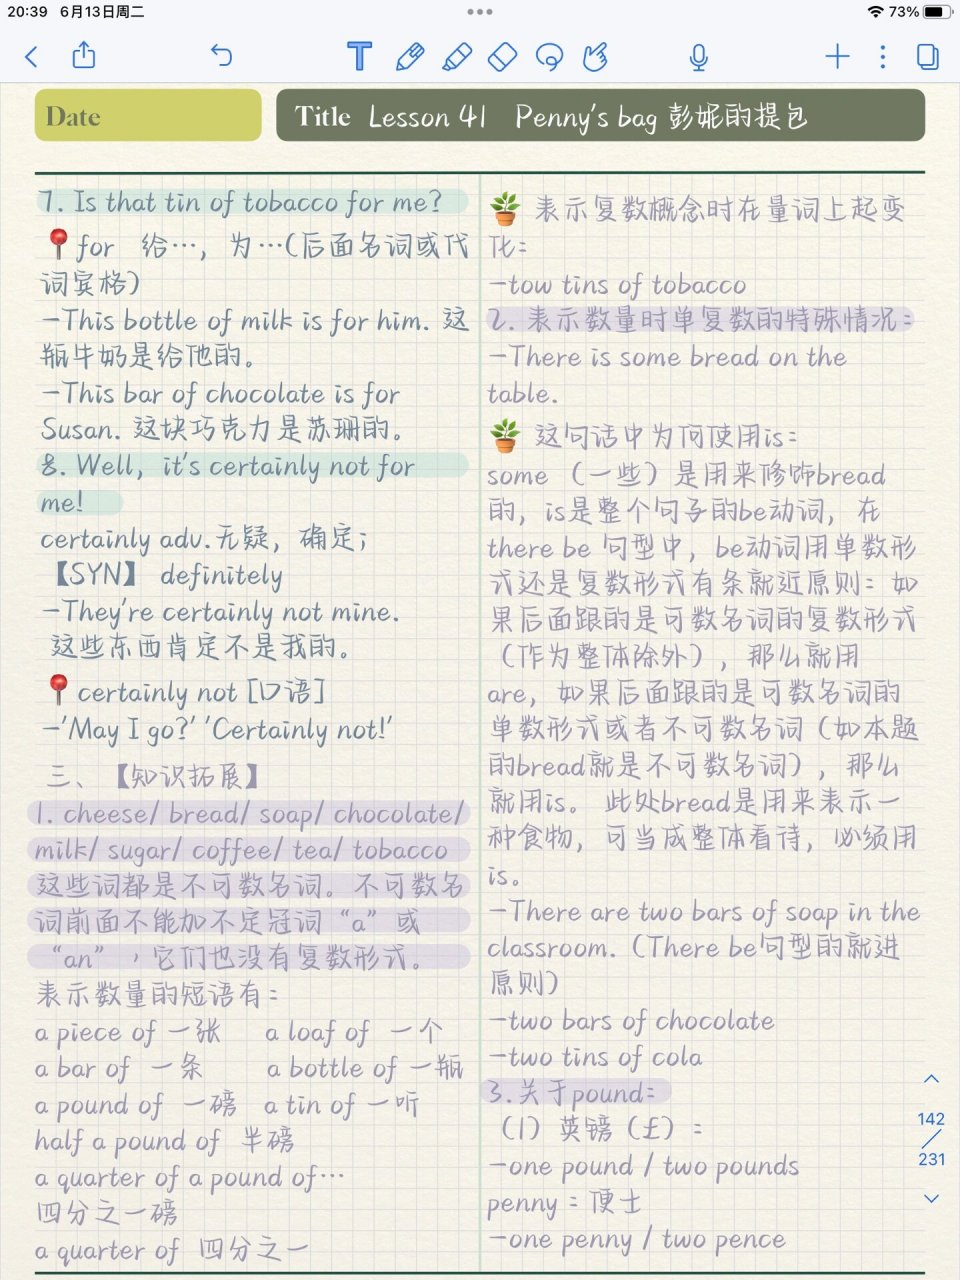 20:39 6月13日周二
73%
Date
Title Lesson 41 Penny's bag 彭妮的提包
7. Is that tin of tobacco for me?
for 给…，为…（后面名词或代
词宾格）
-This bottle of milk is for him. 这
瓶牛奶是给他的。
-This bar of chocolate is for
Susan. 这块巧克力是苏珊的。
8. Well, it's certainly not for
me!
certainly adv.无疑，确定；
【SYN】 definitely
-They're certainly not mine.
这些东西肯定不是我的。
certainly not [口语]
-'May I go?' 'Certainly not!'
三、【知识拓展】
1. cheese/ bread/ soap/ chocolate/
milk/ sugar/ coffee/ tea/ tobacco
这些词都是不可数名词。不可数名
词前面不能加不定冠词“a”或
“an”，它们也没有复数形式。
表示数量的短语有：
a piece of 一张 a loaf of 一个
a bar of 一条 a bottle of 一瓶
a pound of 一磅 a tin of 一听
half a pound of 半磅
a quarter of a pound of…
四分之一磅
a quarter of 四分之一
表示复数概念时在量词上起变
化：
-tow tins of tobacco
2. 表示数量时单复数的特殊情况：
-There is some bread on the
table.
这句话中为何使用is：
some （一些）是用来修饰bread
的，is是整个句子的be动词，在
there be 句型中，be动词用单数形
式还是复数形式有条就近原则：如
果后面跟的是可数名词的复数形式
（作为整体除外），那么就用
are，如果后面跟的是可数名词的
单数形式或者不可数名词（如本题
的bread就是不可数名词），那么
就用is。 此处bread是用来表示一
种食物，可当成整体看待，必须用
is。
-There are two bars of soap in the
classroom.（There be句型的就进
原则）
-two bars of chocolate
-two tins of cola
3.关于pound：
（1）英镑（£）：
-one pound / two pounds
penny：便士
-one penny / two pence
142
231